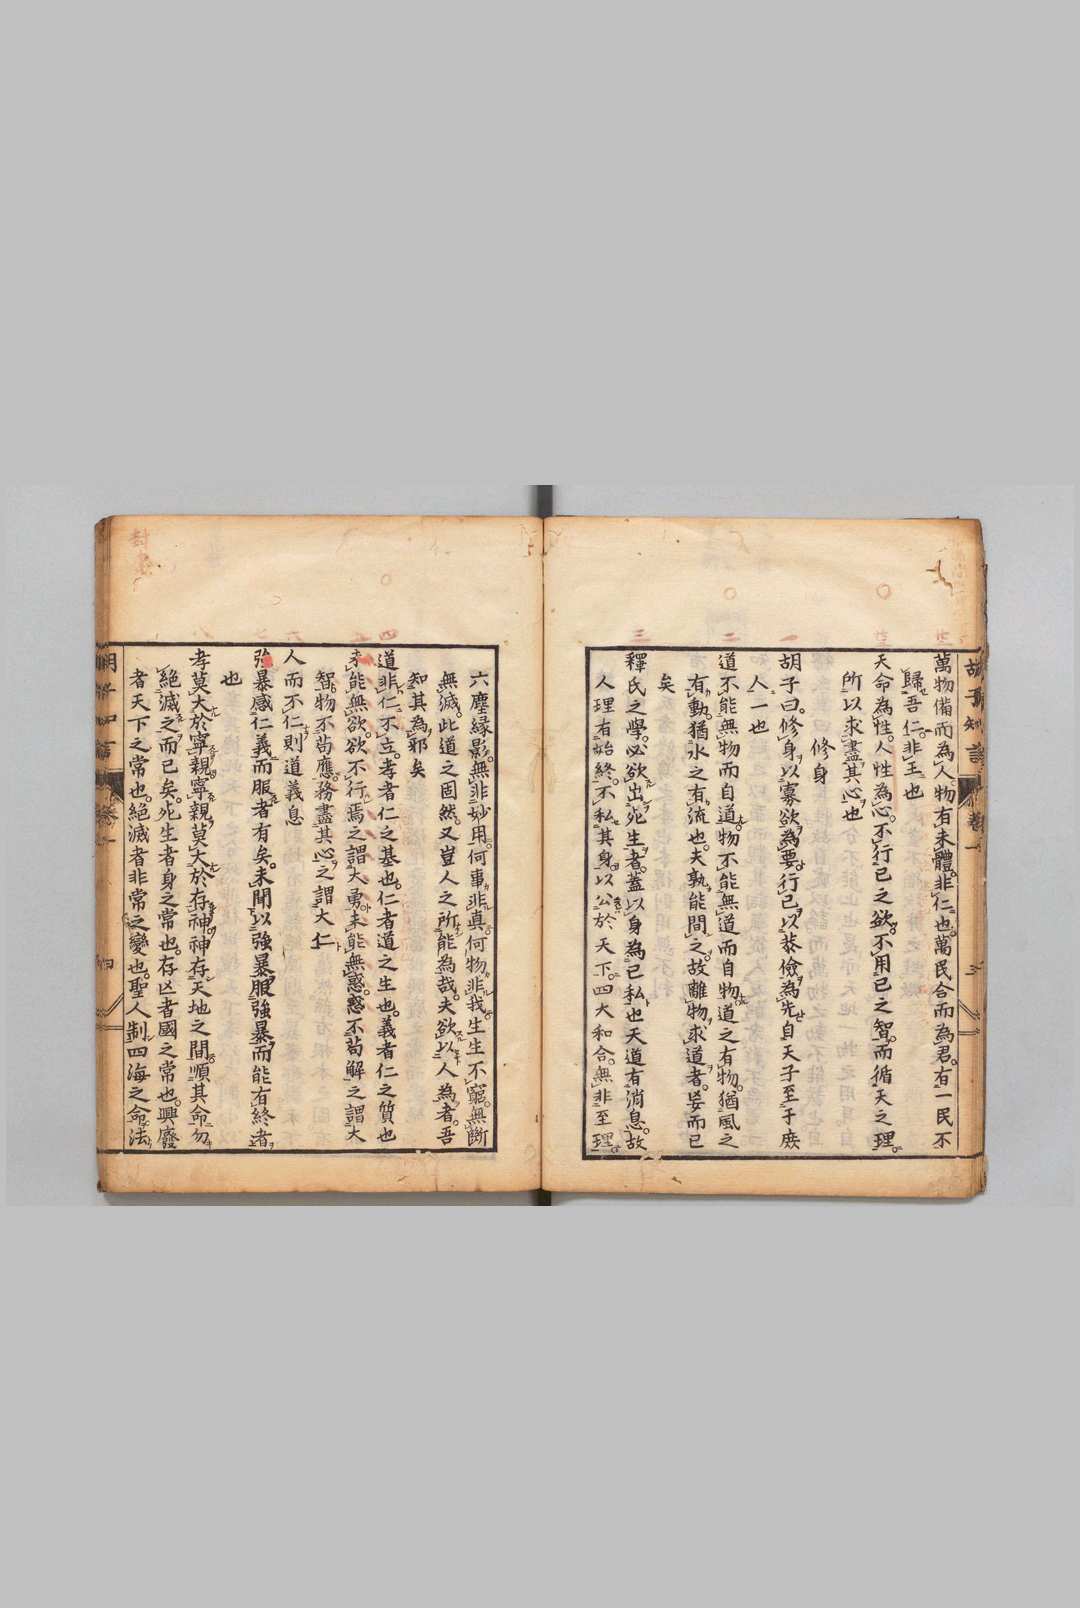 胡子知言 卷一 三
萬物備而為人物有未體非仁也萬民合而為君有一民不
歸吾仁非王也
天命為性人性為心不行已之欲不用已之智而循天之理
所以求盡其心也
修身
胡子曰修身以寡欲為要行已以恭儉為先自天子至于庶
人一也
道不能無物而自道物不能無道而自物道之有物猶風之
有動猶水之有流也夫孰能間之故離物求道者妄而已
矣
釋氏之學必欲出死生者蓋以身為已私也天道有消息故
人理有始終不私其身以公於天下四大和合無非至理
六塵緣影無非妙用何事非真何物非我生生不窮無斷
無滅此道之固然又豈人之所能為哉夫欲以人為者吾
知其為邪矣
道非仁不立孝者仁之基也仁者道之生也義者仁之質也
未能無欲欲不行焉之謂大勇未能無惑惑不苟解之謂大
智物不苟應務盡其心之謂大仁
人而不仁則道義息
強暴感仁義而服者有矣未聞以強暴服強暴而能有終者
也
孝莫大於寧親寧親莫大於存神神存天地之間順其命勿
絕滅之而已矣死生者身之常也存亡者國之常也興廢
者天下之常也絕滅者非常之變也聖人制四海之命法
胡子知言 卷一 四